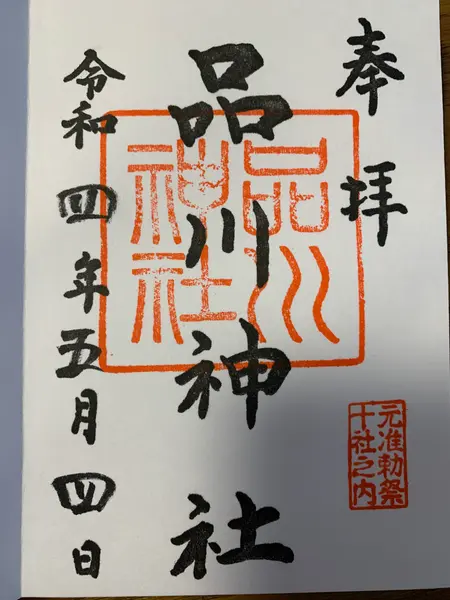 奉拝
品川神社
令和四年五月四日
品川
神社
元准勅祭
十社之内